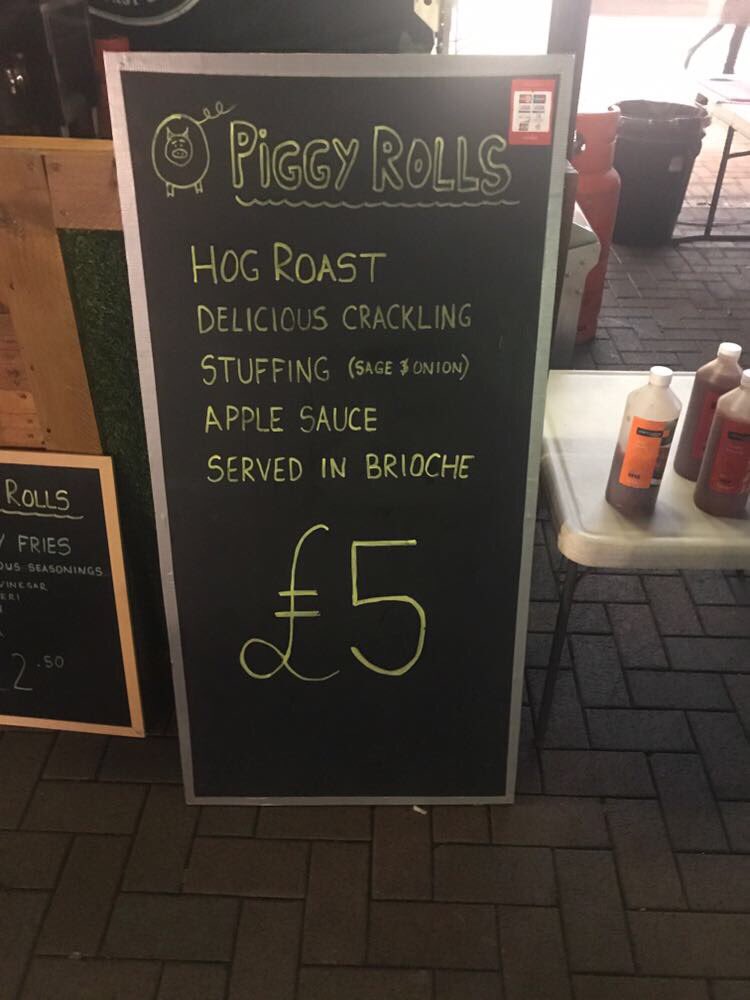 PIGGY ROLLS
HOG ROAST
DELICIOUS CRACKLING
STUFFING (SAGE & ONION)
APPLE SAUCE
SERVED IN BRIOCHE
£5
ROLLS
FRIES
SEASONINGS
VINEGAR
2.50